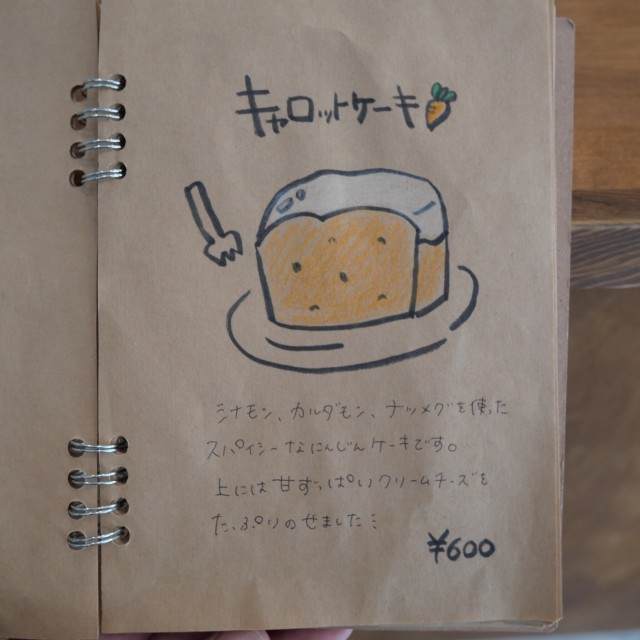 キャロットケーキ
シナモン、カルダモン、ナツメグを使った
スパイシーなにんじんケーキです。
上には甘ずっぱいクリームチーズを
たっぷりのせました
¥600